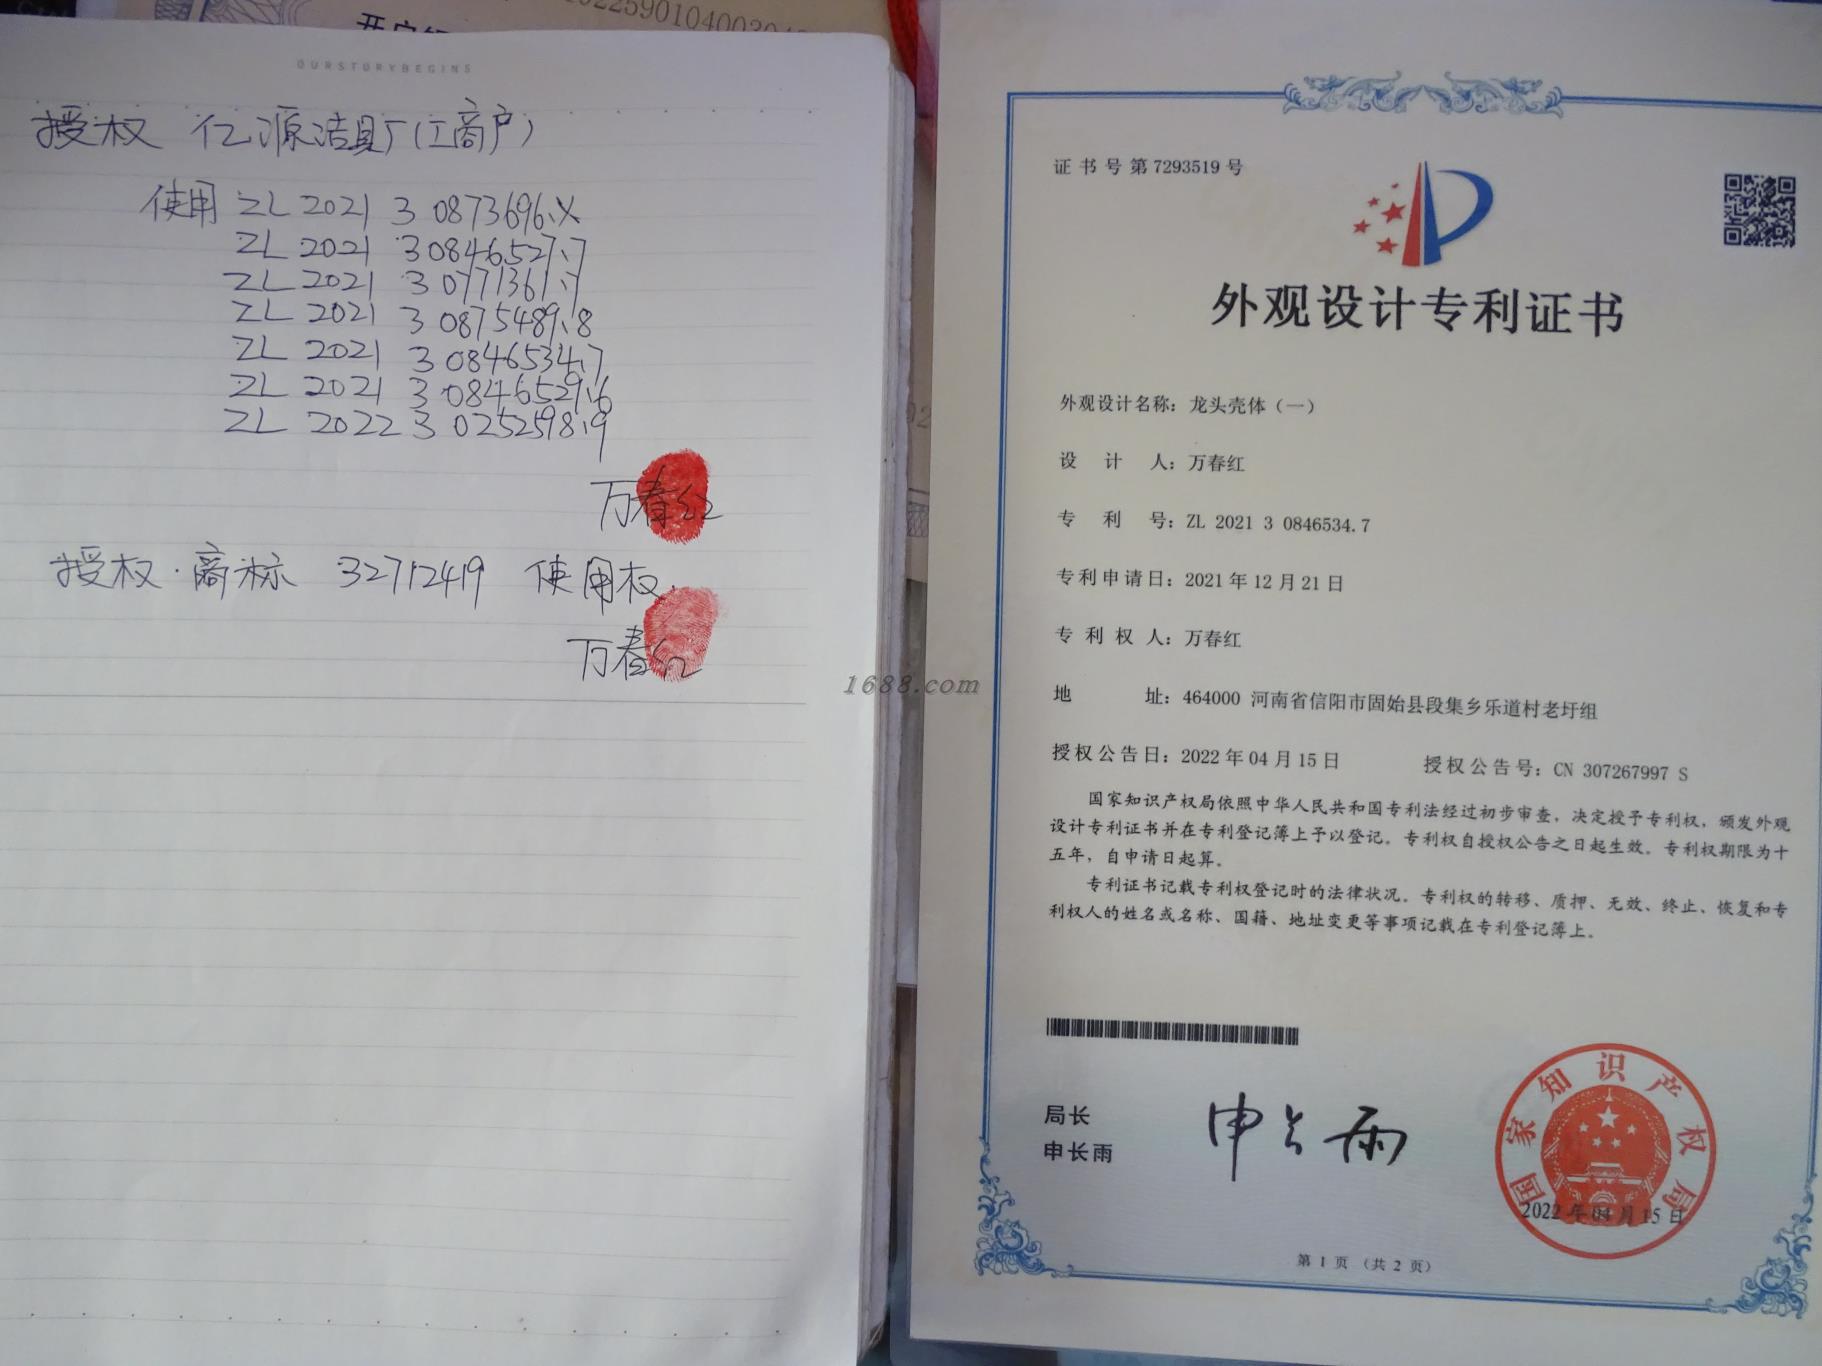 OURSTORYBEGINS
授权 亿源洁具厂(工商户)
使用 ZL 2021 3 0873696.X
ZL 2021 3 0846527.7
ZL 2021 3 0771367.7
ZL 2021 3 0875489.8
ZL 2021 3 0846534.7
ZL 2021 3 0846529.6
ZL 2022 3 0252598.9
万春红
授权·商标 32712419 使用权.
万春红
1688.com
证书号第7293519号
外观设计专利证书
外观设计名称：龙头壳体（一）
设计人：万春红
专利号：ZL 2021 3 0846534.7
专利申请日：2021年12月21日
专利权人：万春红
地址：464000 河南省信阳市固始县段集乡乐道村老圩组
授权公告日：2022年04月15日 授权公告号：CN 307267997 S
国家知识产权局依照中华人民共和国专利法经过初步审查，决定授予专利权，颁发外观
设计专利证书并在专利登记簿上予以登记。专利权自授权公告之日起生效。专利权期限为十
五年，自申请日起算。
专利证书记载专利权登记时的法律状况。专利权的转移、质押、无效、终止、恢复和专
利权人的姓名或名称、国籍、地址变更等事项记载在专利登记簿上。
局长
申长雨
申长雨
国家知识产权局
2022年04月15日
第1页（共2页）